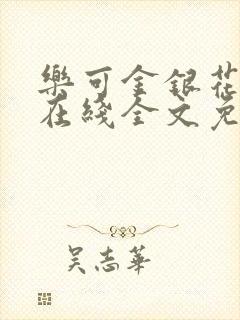 樂可金銀花
在綫全文免
吴志華